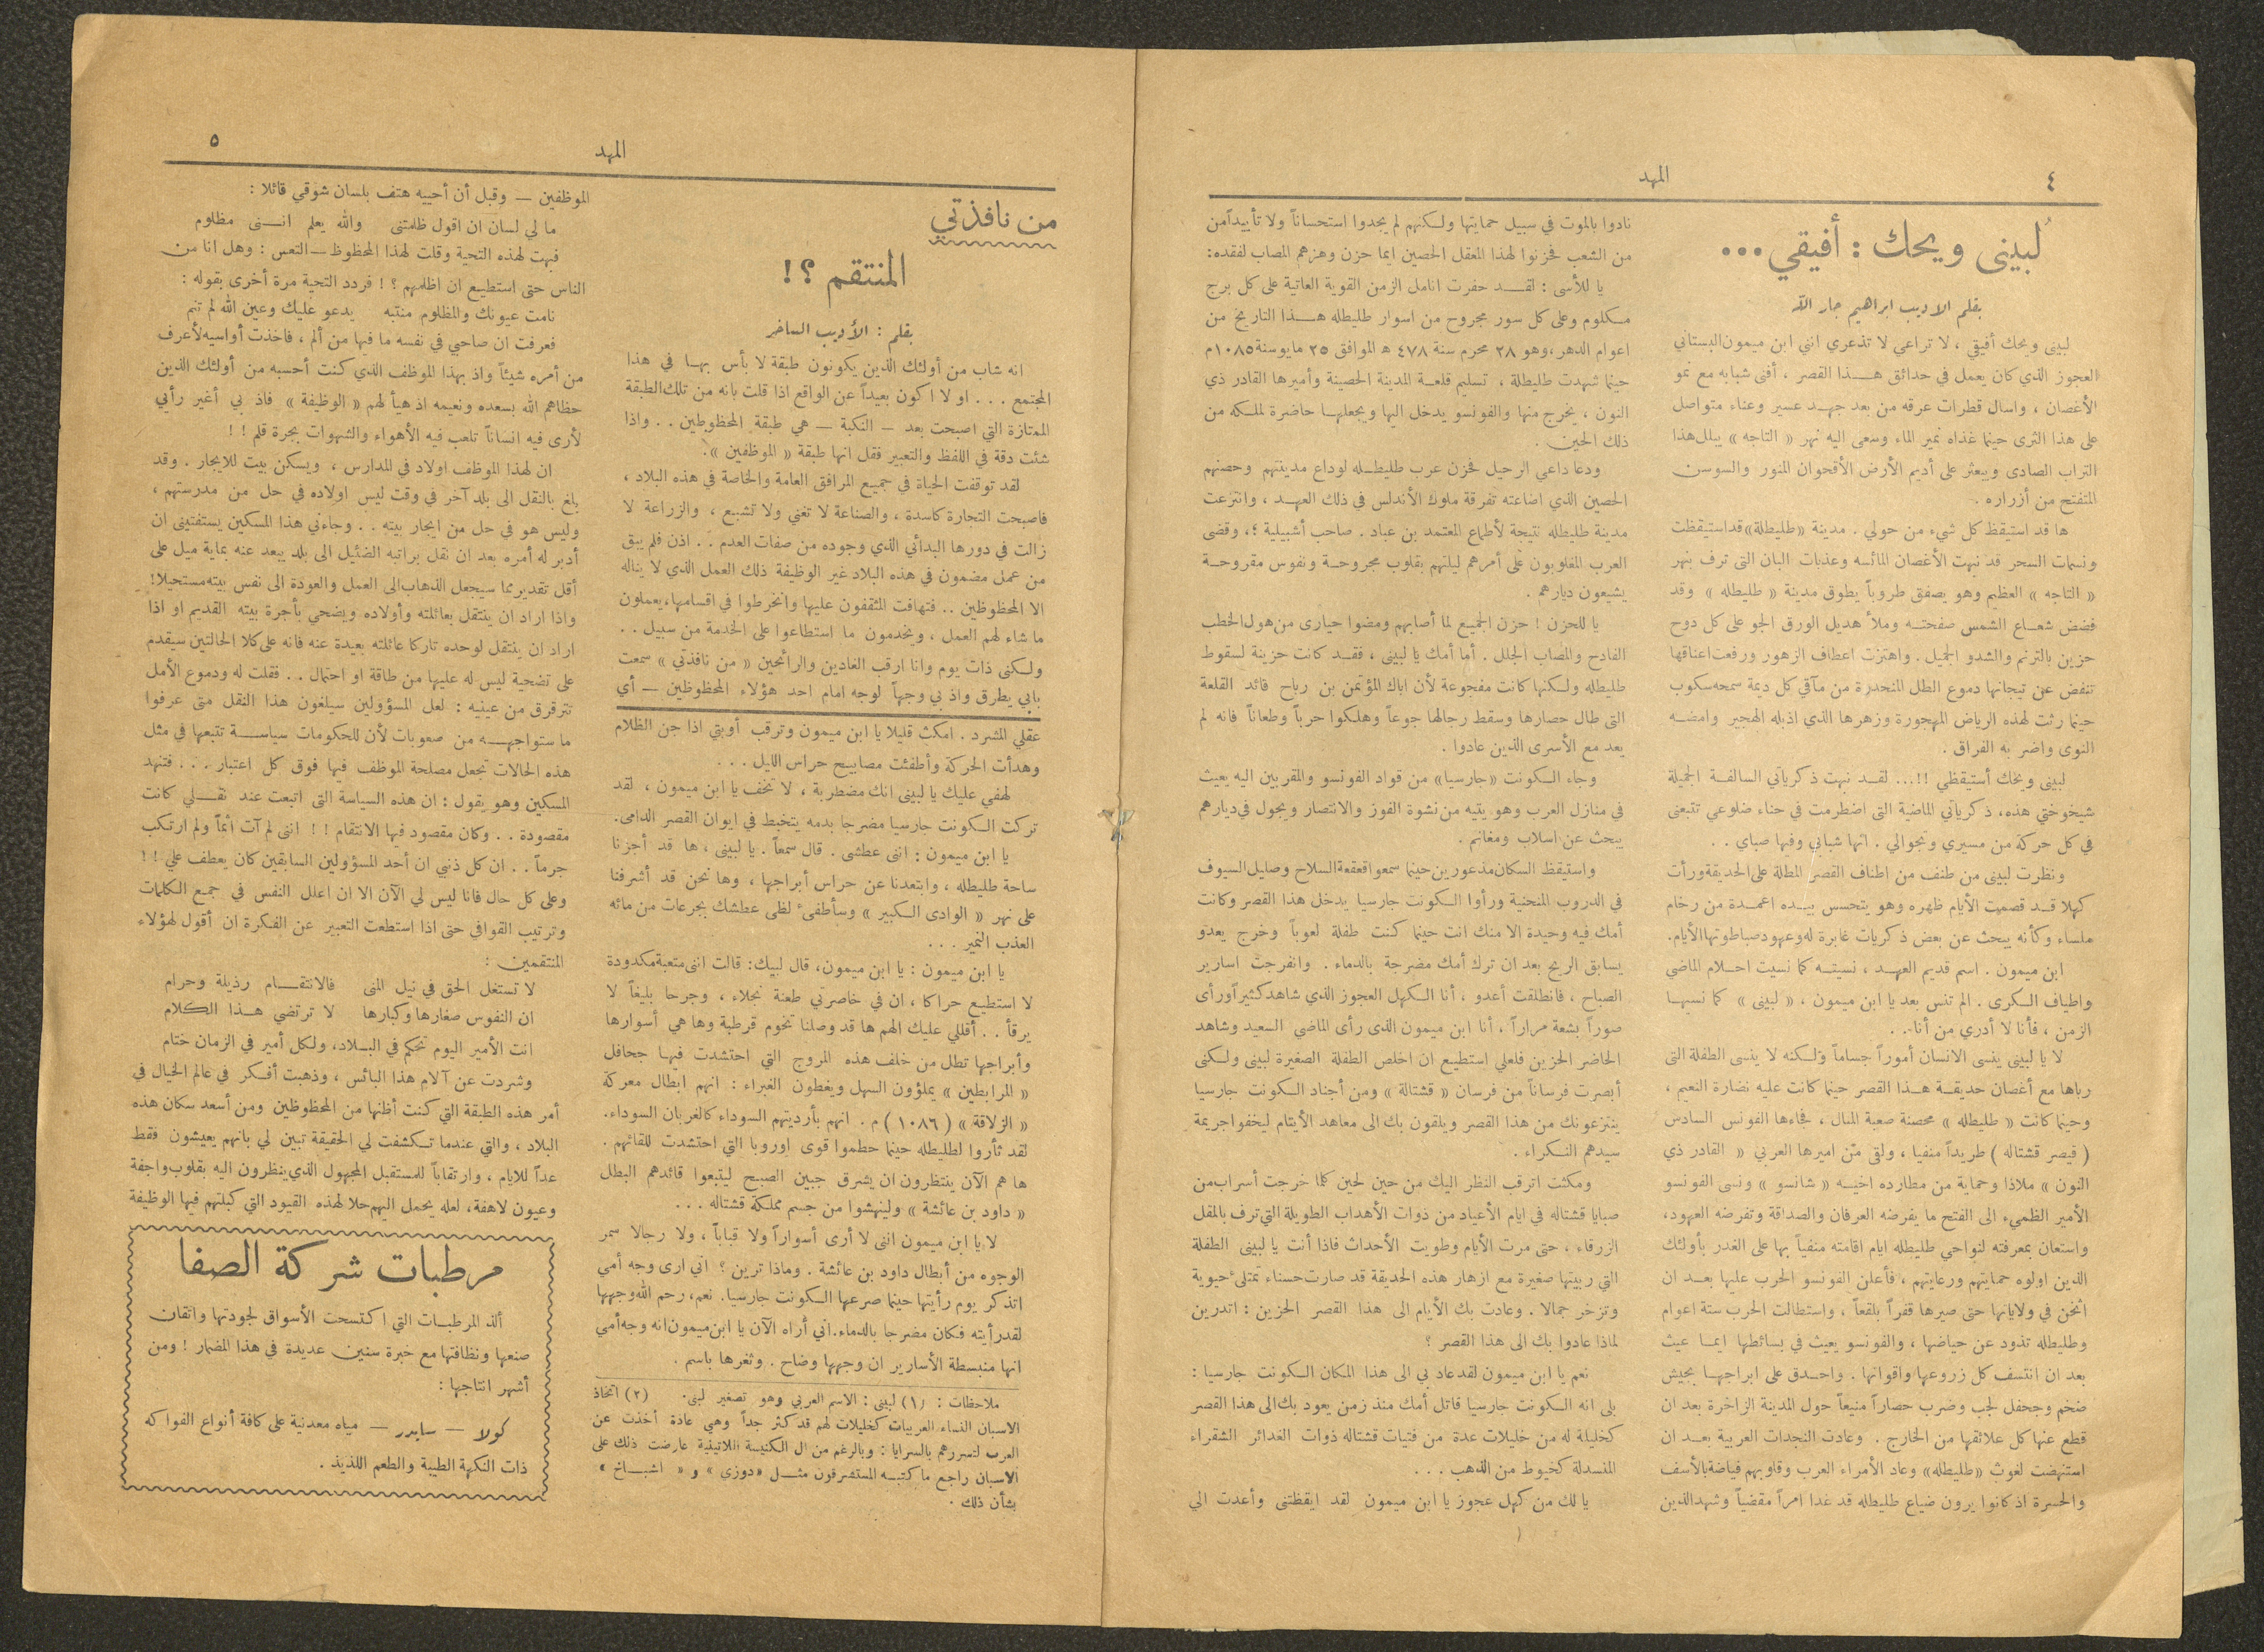 ٤
المهد
لُبينى ويحك : أفيقي ...
بقلم الاديب ابراهيم جار الله
لبينى ويحك أفيقي ، لا تراعي لا تذعري انني ابن ميمون البستاني
العجوز الذي كان يعمل في حدائق هـذا القصر . أفنى شبابه مع نمو
الأغصان ، واسال قطرات عرقه من بعد جهـد عسير وعناء متواصل
على هذا الثرى حينما غذاه نمير الماء وسعى اليه نهر « التاجه » يبلل هذا
التراب الصادى ويبعثر على أديم الأرض الأقحوان المنور والسوسن
المتفتح من أزراره .
ها قد استيقظ كل شيء من حولي . مدينة «طليطلة» قد استيقظت
ونسمات السحر قد نبهت الأغصان المائسه وعذبات البان التى ترف بنهر
« التاجه » العظيم وهو يصفق طروباً يطوق مدينة « طليطله » وقد
فضض شعـاع الشمس صفحتـه وملأ هديل الورق الجو على كل دوح
حزين بالترنم والشدو الجميل . واهتزت اعطاف الزهور ورفعت اعناقها
تنفض عن تيجانها دموع الطل المنحدرة من مآقي كل ديمة سمحه سكوب
حينما رثت لهذه الرياض المهجورة وزهرها الذي اذبله الهجير وامضـه
النوى واضر به الفراق .
لبينى ويحك أستيقظي !!... لقـد نبهت ذكرياتي السالفـة الجميلة
شيخوختي هذه، ذكرياتي الماضية التى اضطرمت في حناء ضلوعي تتبعنى
في كل حركة من مسيري وتجوالي . انها شبابي وفيها صباي . .
ونظرت لبينى من طنف من اطناف القصر المطلة على الحديقة ورأت
كهلا قـد قصمت الأيام ظهره وهو يتحسس بيـده اعمـدة من رخام
ملساء وكأنه يبحث عن بعض ذكريات غابرة له وعهود صبا طوتها الأيام.
ابن ميمون . اسم قديم العهـد ، نسيتـه كما نسيت احـلام الماضي
واطياف الكرى . الم تنس بعد يا ابن ميمون ، « لبينى » كما نسيها
الزمن ، فأنا لا أدري من أنا . .
لا يا لبينى ينسى الانسان أموراً جساماً ولكنه لا ينسى الطفلة التى
رباها مع أغصان حديقـة هـذا القصر حينما كانت عليه نضارة النعيم ،
وحينما كانت « طليطله » محصنة صعبة المنال ، فجاءها الفونس السادس
( قيصر قشتاله ) طريداً منفيا ، ولقى من اميرها العربي « القادر ذي
النون » ملاذا وحماية من مطارده اخيـه « شانسو » ونسى الفونسو
الأمير الظميء الى الفتح ما يفرضه العرفان والصداقة وتفرضه العهود،
واستعان بمعرفته لنواحي طليطله ايام اقامته منفياً بها على الغدر بأولئك
الذين اولوه حمايتهم ورعايتهم ، فأعلن الفونسو الحرب عليها بعـد ان
أثخن في ولاياتها حتى صيرها قفراً بلقعاً ، واستطالت الحرب ستة اعوام
وطليطله تذود عن حياضها ، والفونسو يعيث في بسائطها ايمـا عيث
بعد ان انتسف كل زروعها واقواتها . واحـدق على ابراجهـا بجيش
ضخم وجحفل لجب وضرب حصاراً منيعاً حول المدينة الزاخرة بعد ان
قطع عنها كل علائقها من الخارج . وعادت النجدات العربية بعـد ان
استنهضت لغوث «طليطله» وعاد الأمراء العرب وقلوبهم فياضة بالأسف
والحسرة اذ كانوا يرون ضياع طليطله قد غدا امراً مقضياً وشهد الذين
نادوا بالموت في سبيل حمايتها ولكنهم لم يجدوا استحساناً ولا تأييداً من
من الشعب فحزنوا لهذا المعقل الحصين ايما حزن وهزهم المصاب لفقده:
يا للأسى : لقـد حفرت انامل الزمن القوية العاتية على كل برج
مكلوم وعلى كل سور مجروح من اسوار طليطله هـذا التاريخ من
اعوام الدهر ، وهو ٢٨ محرم سنة ٤٧٨ ه الموافق ٢٥ مايو سنة ١٠٨٥م
حينما شهدت طليطلة ، تسليم قلعـة المدينة الحصينة وأميرها القادر ذي
النون ، يخرج منها والفونسو يدخل اليها ويجعلهـا حاضرة لملكه من
ذلك الحين .
ودعا داعي الرحيل فحزن عرب طليطـله لوداع مدينتهم وحصنهم
الحصين الذي اضاعته تفرقة ملوك الأندلس في ذلك العهـد ، وانتزعت
مدينة طليطله نتيجة لأطماع المعتمد بن عباد . صاحب أشبيلية ؛، وقضى
العرب المغلوبون على أمرهم ليلتهم بقلوب مجروحـة ونفوس مقروحـة
يشيعون ديارهم .
يا للحزن ! حزن الجميع لما أصابهم ومضوا حيارى من هول الخطب
الفادح والمصاب الجلل . أما أمك يا لبينى ، فقـد كانت حزينة لسقوط
طليطله ولكنها كانت مفجوعة لأن اباك المؤتمن بن رباح قائد القلعة
التى طال حصارها وسقط رجالها جوعاً وهلكوا حرباً وطعاناً فانه لم
يعد مع الأسرى الذين عادوا .
وجاء الكونت «جارسيا» من قواد الفونسو والمقربين اليه يعيث
في منازل العرب وهو يتيه من نشوة الفوز والانتصار ويجول في ديارهم
يبحث عن اسلاب ومغانم .
واستيقظ السكان مذعورين حينما سمعوا قعقعة السلاح وصليل السيوف
في الدروب المنحنية ورأوا الكونت جارسيا يدخل هذا القصر وكانت
أمك فيه وحيدة الا منك انت حينما كنت طفلة لعوباً وخرج يعدو
يسابق الريح بعد ان ترك أمك مضرجة بالدماء . وانفرجت اسارير
الصباح ، فانطلقت أعدو ، أنا الكهل العجوز الذي شاهد كثيراً ورأى
صوراً بشعة مراراً ، أنا ابن ميمون الذى رأى الماضي السعيد وشاهد
الحاضر الحزين فلعلي استطيع ان اخلص الطفلة الصغيرة لبينى ولكنى
أبصرت فرساناً من فرسان « قشتالة » ومن أجناد الكونت جارسيا
ينتزعونك من هذا القصر ويلقون بك الى معاهد الأيتام ليخفوا جريمة
سيدهم النكراء .
ومكثت اترقب النظر اليك من حين لحين كلما خرجت أسراب من
صبايا قشتاله في ايام الأعياد من ذوات الأهداب الطويلة التي ترف بالمقل
الزرقاء ، حتى مرت الأيام وطويت الأحداث فاذا أنت يا لبينى الطفلة
التي ربيتها صغيرة مع ازهار هذه الحديقة قد صارت حسناء تمتلئ حيوية
وتزخر جمالا . وعادت بك الأيام الى هذا القصر الحزين : اتدرين
لماذا عادوا بك الى هذا القصر ؟
نعم يا ابن ميمون لقد عاد بي الى هذا المكان الكونت جارسيا :
بلى انه الكونت جارسيا قاتل أمك منذ زمن يعود بك الى هذا القصر
كخليلة له من خليلات عدة من فتيات قشتاله ذوات الغدائر الشقراء
المنسدلة كخيوط من الذهب . . .
يا لك من كهل عجوز يا ابن ميمون لقد ايقظتنى وأعدت الي
المهد
٥
من نافذتي
المنتقم ؟!
بقلم : الأديب الساخر
انه شاب من أولئك الذين يكونون طبقة لا بأس بهـا في هذا
المجتمع . . . او لا اكون بعيداً عن الواقع اذا قلت بانه من تلك الطبقة
الممتازة التي اصبحت بعد — النكبة — هي طبقة المحظوظين . . واذا
شئت دقة في اللفظ والتعبير فقل انها طبقة « الموظفين ».
لقد توقفت الحياة في جميع المرافق العامة والخاصة في هذه البلاد ،
فاصبحت التجارة كاسدة ، والصناعة لا تغني ولا تشبع ، والزراعة لا
زالت في دورها البدائي الذي وجوده من صفات العدم . . اذن فلم يبق
من عمل مضمون في هذه البلاد غير الوظيفة ذلك العمل الذي لا يناله
الا المحظوظين .. فتهافت المثقفون عليها وانخرطوا في اقسامها ، يعملون
ما شاء لهم العمل ، ويخدمون ما استطاعوا على الخدمة من سبيل . .
ولكنى ذات يوم وانا ارقب الغادين والرائحين « من نافذتي » سمعت
بابي يطرق واذ بي وجهاً لوجه امام احد هؤلاء المحظوظين — أي
عقلي المشرد . امكث قليلا يا ابن ميمون وترقب أوبتي اذا جن الظلام
وهدأت الحركة وأطفئت مصابيح حراس الليل . . .
لهفي عليك يا لبينى انك مضطربة ، لا تخف يا ابن ميمون ، لقد
تركت الكونت جارسيا مضرجا بدمه يتخبط في ايوان القصر الدامى.
يا ابن ميمون : اننى عطشى . قال سمعاً . يا لبينى ، ها قد أجزنا
ساحة طليطله ، وابتعدنا عن حراس أبراجها ، وها نحن قد أشرفنا
على نهر « الوادى الكبير » وسأطفئ لظى عطشك بجرعات من مائه
العذب النمير . . .
يا ابن ميمون : يا ابن ميمون، قال لبيك: قالت اننى متعبة مكدودة
لا استطيع حراكا ، ان في خاصرتي طعنة نجلاء ، وجرحا بليغاً لا
يرقأ . . أقللي عليك الهم ها قد وصلنا تخوم قرطبة وها هي أسوارها
وأبراجها تطل من خلف هذه المروج التي احتشدت فيهـا جحافل
« المرابطين » يملؤون السهل ويغطون الغبراء : انهم ابطال معركة
« الزلاقة » ( ١٠٨٦ ) م . انهم بأرديتهم السوداء كالغربان السوداء.
لقد ثأروا لطليطله حينما حطموا قوى اوروبا التي احتشدت للقائهم .
ها هم الآن ينتظرون ان يشرق جبين الصبح ليتبعوا قائدهم البطل
« داود بن عائشة » ولينهشوا من جسم مملكة قشتاله . . .
لا يا ابن ميمون اننى لا أرى أسواراً ولا قباباً ، ولا رجالا سمر
الوجوه من أبطال داود بن عائشة . وماذا ترين ؟ اني ارى وجه أمي
اتذكر يوم رأيتها حينما صرعها الكونت جارسيا . نعم ، رحم الله وجهها
لقد رأيته فكان مضرجا بالدماء . اني أراه الآن يا ابن ميمون انه وجه أمي
انها منبسطة الأسارير ان وجهها وضاح . وثغرها باسم .
ملاحظات : (١) لبينى : الاسم العربي وهو تصغير لبنى . (٢) اتخاذ
الاسبان النساء العربيات كخليلات لهم قد كثر جداً وهي عادة أخذت عن
العرب لتسررهم بالسرايا : وبالرغم من ال الكنيسة اللاتينية عارضت ذلك على
الاسبان راجع ما كتبـه المستشرقون مثـل «دوزي » و « اشبـاخ »
بشأن ذلك .
الموظفين — وقبل أن أحييه هتف بلسان شوقي قائلا :
ما لي لسان ان اقول ظلمتنى والله يعلم انـنى مظلوم
فبهت لهذه التحية وقلت لهذا المحظوظ — التعس : وهل انا من
الناس حتى استطيع ان اظلمهم ؟ ! فردد التحية مرة أخرى بقوله :
نامت عيونك والمظلوم منتبه يدعو عليك وعين الله لم تنم
فعرفت ان صاحبي في نفسه ما فيها من ألم ، فاخذت أواسيه لأعرف
من أمره شيئاً واذ بهذا الموظف الذي كنت أحسبه من أولئك الذين
حظاهم الله بسعده ونعيمه اذ هيأ لهم « الوظيفة » فاذ بي أغير رأيي
لأرى فيه انساناً تلعب فيه الأهواء والشهوات بجرة قلم ! !
ان لهذا الموظف اولاد في المدارس ، ويسكن بيت للايجار . وقد
بلغ بالنقل الى بلد آخر في وقت ليس اولاده في حل من مدرستهم ،
وليس هو في حل من ايجار بيته . . وجاءني هذا المسكين يستفتيني ان
أدبر له أمره بعد ان نقل براتبه الضئيل الى بلد يبعد عنه عاية ميل على
أقل تقدير مما سيجعل الذهاب الى العمل والعودة الى نفس بيته مستحيلا!
واذا اراد ان ينتقل بعائلته وأولاده ويضحي بأجرة بيته القديم او اذا
اراد ان ينتقل لوحده تاركا عائلته بعيدة عنه فانه على كلا الحالتين سيقدم
على تضحية ليس له عليها من طاقة او احتمال . . فقلت له ودموع الأمل
تترقرق من عينيه : لعل المسؤولين سيلغون هذا النقل متى عرفوا
ما ستواجهـه من صعوبات لأن للحكومات سياسـة تتبعها في مثل
هذه الحالات تجعل مصلحة الموظف فيها فوق كل اعتبار . . . فتنهد
المسكين وهو يقول : ان هذه السياسة التى اتبعت عند نقـلي كانت
مقصودة . . وكان مقصود فيها الانتقام ! ! اننى لم آت اثماً ولم ارتكب
جرماً . . ان كل ذنبي ان أحد المسؤولين السابقين كان يعطف علي ! !
وعلى كل حال فانا ليس لي الآن الا ان اعلل النفس في جميع الكلمات
وترتيب القوافي حتى اذا استطعت التعبير عن الفكرة ان أقول لهؤلاء
المنتقمين :
لا تستغل الحق في نيل المنى فالانتقـام رذيلة وحرام
ان النفوس صغارها وكبارها لا ترتضي هـذا الكلام
انت الأمير اليوم تحكم في البـلاد، ولكل أمير في الزمان ختام
وشردت عن آلام هذا البائس ، وذهبت أفكر في عالم الخيال في
أمر هذه الطبقة التي كنت أظنها من المحظوظين ومن أسعد سكان هذه
البلاد ، والتي عندما تكشفت لي الحقيقة تبين لي بانهم يعيشون فقط
عداً للايام ، وارتقاباً للمستقبل المجهول الذي ينظرون اليه بقلوب واجفة
وعيون لاهفة، لعله يحمل اليهم حلا لهذه القيود التي كبلتهم فيها الوظيفة
مرطبات شركة الصفا
ألذ المرطبـات التي اكتسحت الأسواق لجودتها واتقان
صنعها ونظافتها مع خبرة سنين عديدة في هذا المضمار ! ومن
أشهر انتاجها :
كولا — سايدر — مياه معدنية على كافة أنواع الفواكه
ذات النكهة الطيبة والطعم اللذيذ .